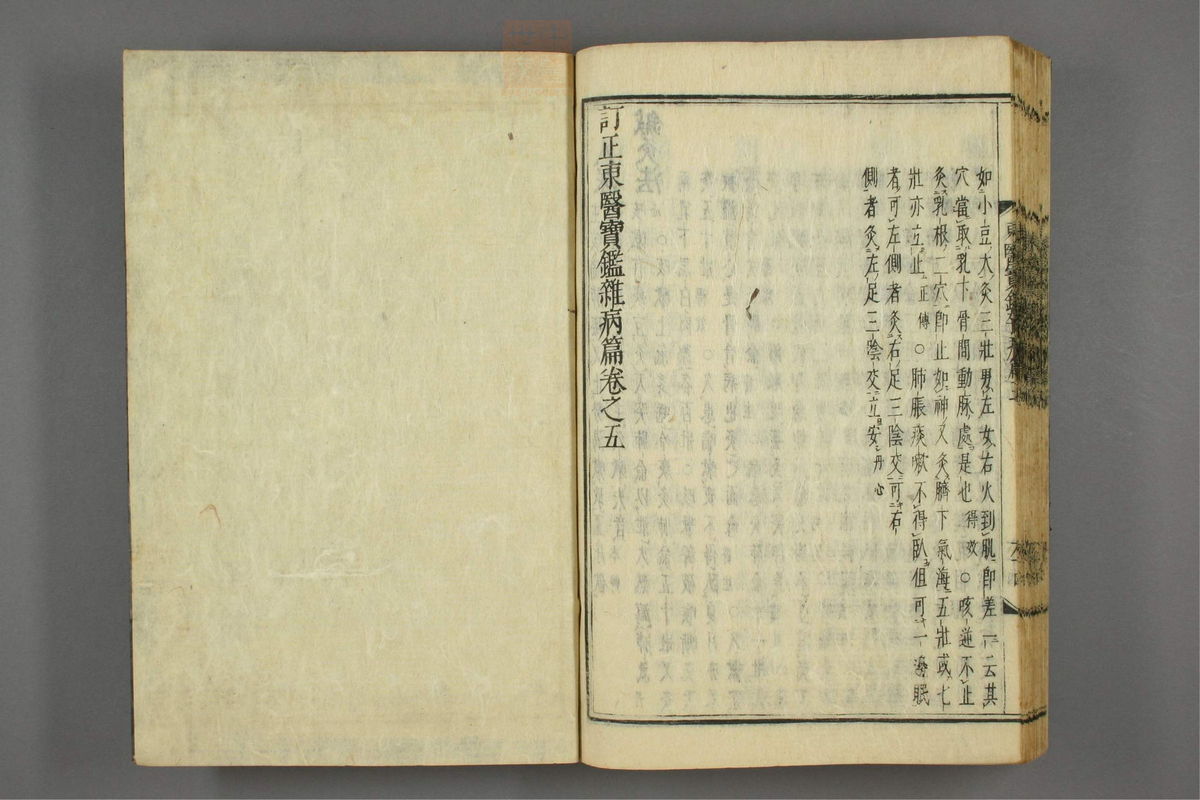 如小豆大灸三壯男左女右火到肌即差一云其
穴當取乳下骨間動脉處是也得效○咳逆不止
灸乳根二穴即止如神又灸臍下氣海五壯或七
壯亦立止正傳○肺脹痰嗽不得臥但可一邊眠
者可左側者灸右足三陰交可右
側者灸左足三陰交立安丹心
訂正東醫寶鑑雜病篇卷之五
東醫寶鑑